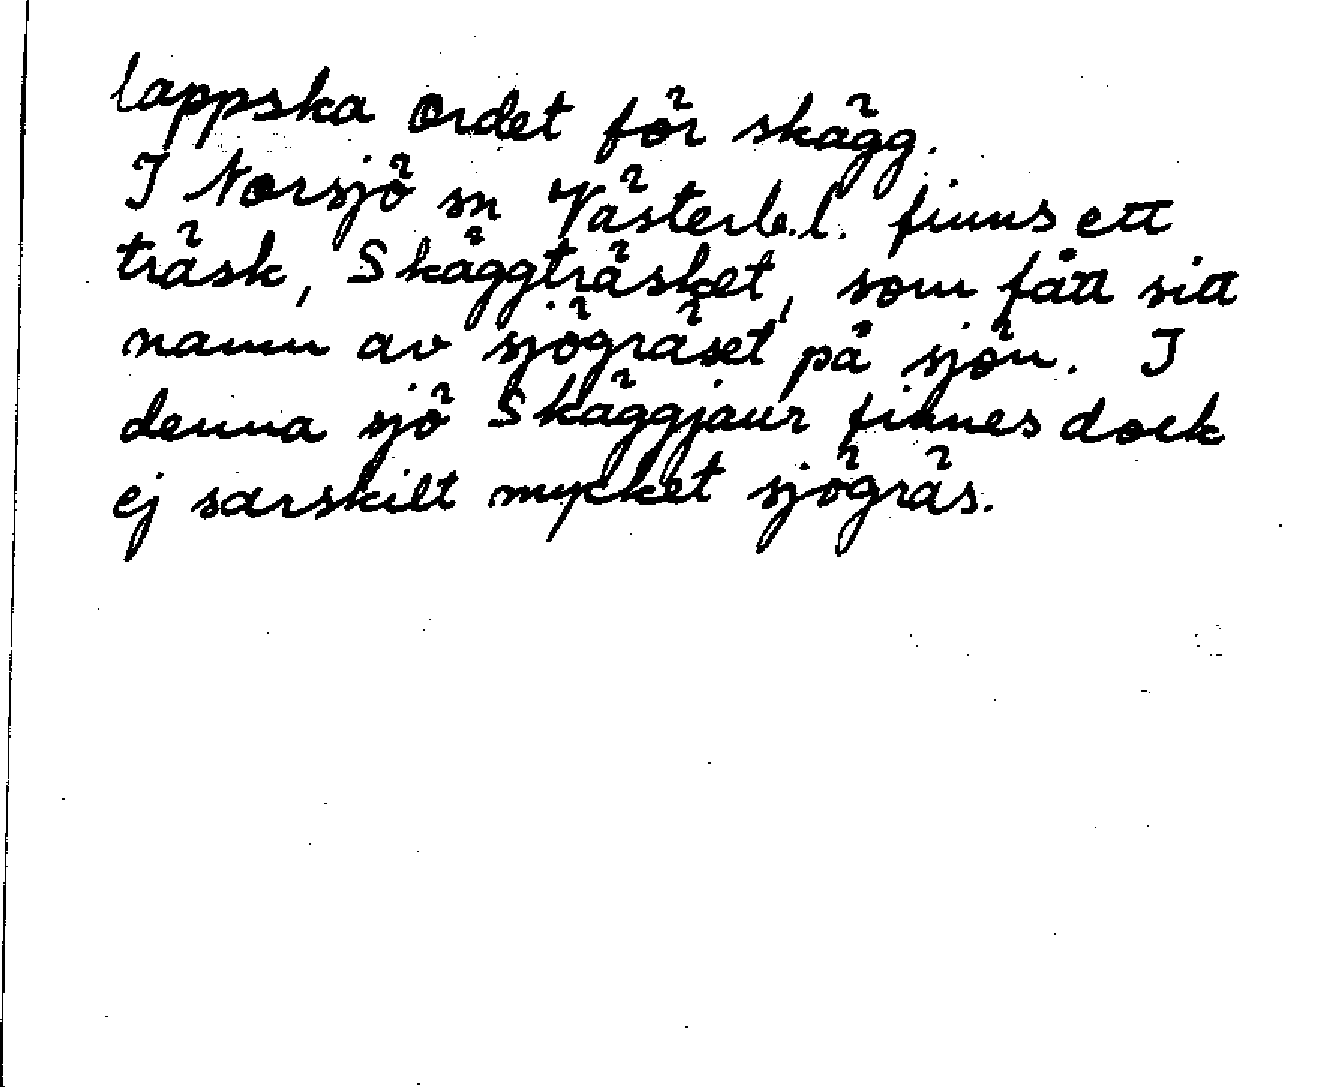 lappska ordet för skägg.
I Norsjö sn Västerb.l. finns ett
träsk, Skäggträsket, som fått sitt
namn av sjögräset på sjön. I
denna sjö Skäggjaur finnes dock
ej sarskilt mycket sjögräs.